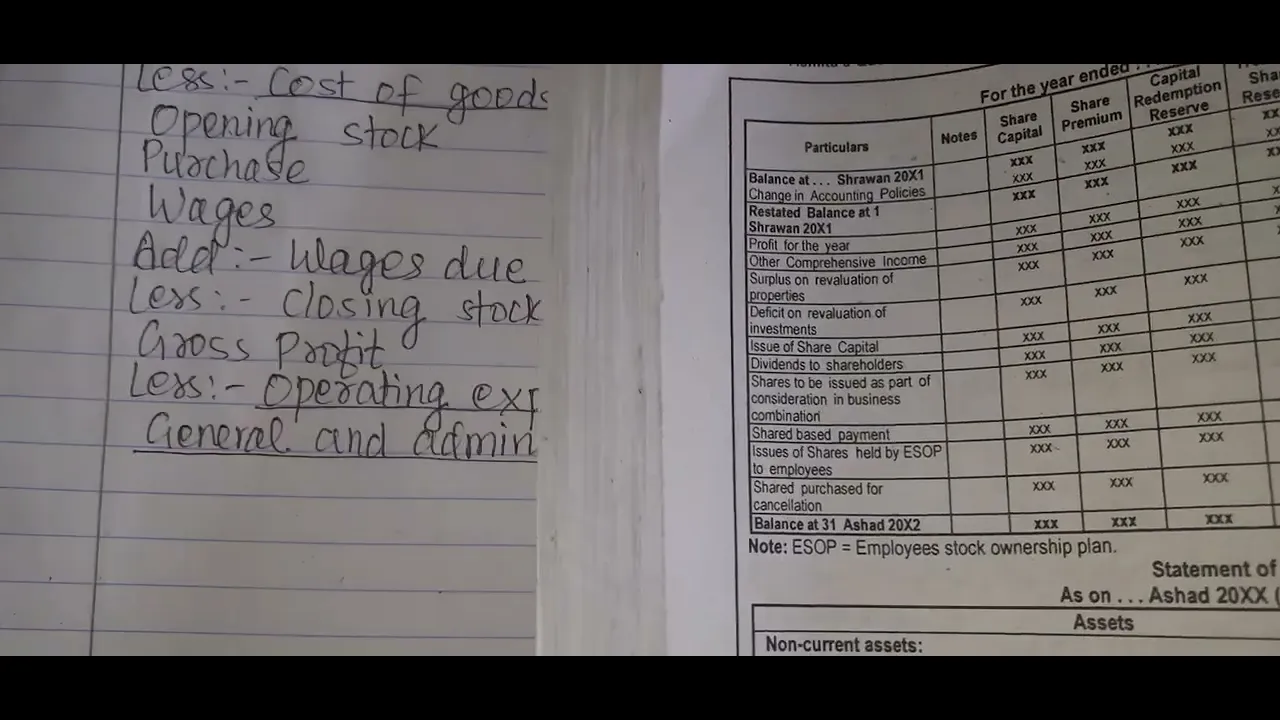 Less:- Cost of goods
Opening stock
Purchase
Wages
Add:- Wages due
Less:- Closing stock
Gross Profit
Less:- Operating exp
General and admin
For the year ended ...
Particulars Notes Share Capital Share Premium Capital Redemption Reserve
Balance at ... Shrawan 20X1 xxx xxx xxx xx
Change in Accounting Policies xxx xxx xxx xx
Restated Balance at 1 Shrawan 20X1 xxx xxx xxx xx
Profit for the year xxx xxx xxx x
Other Comprehensive Income xxx xxx xxx
Surplus on revaluation of properties xxx xxx xxx
Deficit on revaluation of investments xxx xxx xxx
Issue of Share Capital xxx xxx xxx
Dividends to shareholders xxx xxx xxx
Shares to be issued as part of consideration in business combination xxx xxx xxx
Shared based payment xxx xxx xxx
Issues of Shares held by ESOP to employees xxx xxx xxx
Shared purchased for cancellation xxx xxx xxx
Balance at 31 Ashad 20X2 xxx xxx xxx
Note: ESOP = Employees stock ownership plan.
Statement of
As on ... Ashad 20XX (
Assets
Non-current assets: